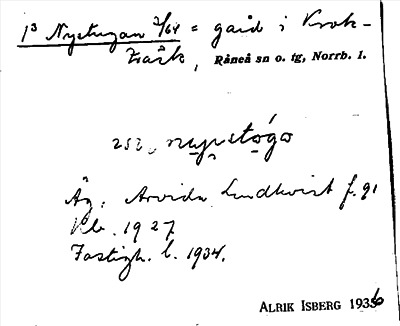 1³ Nystugan 2/64 = gård i Krok-
träsk, Råneå sn o. tg, Norrb. l.
Äg. Arvida Lundkvist f. 91
Kb. 1927
Fastigh. l. 1934.
ALRIK ISBERG 1936